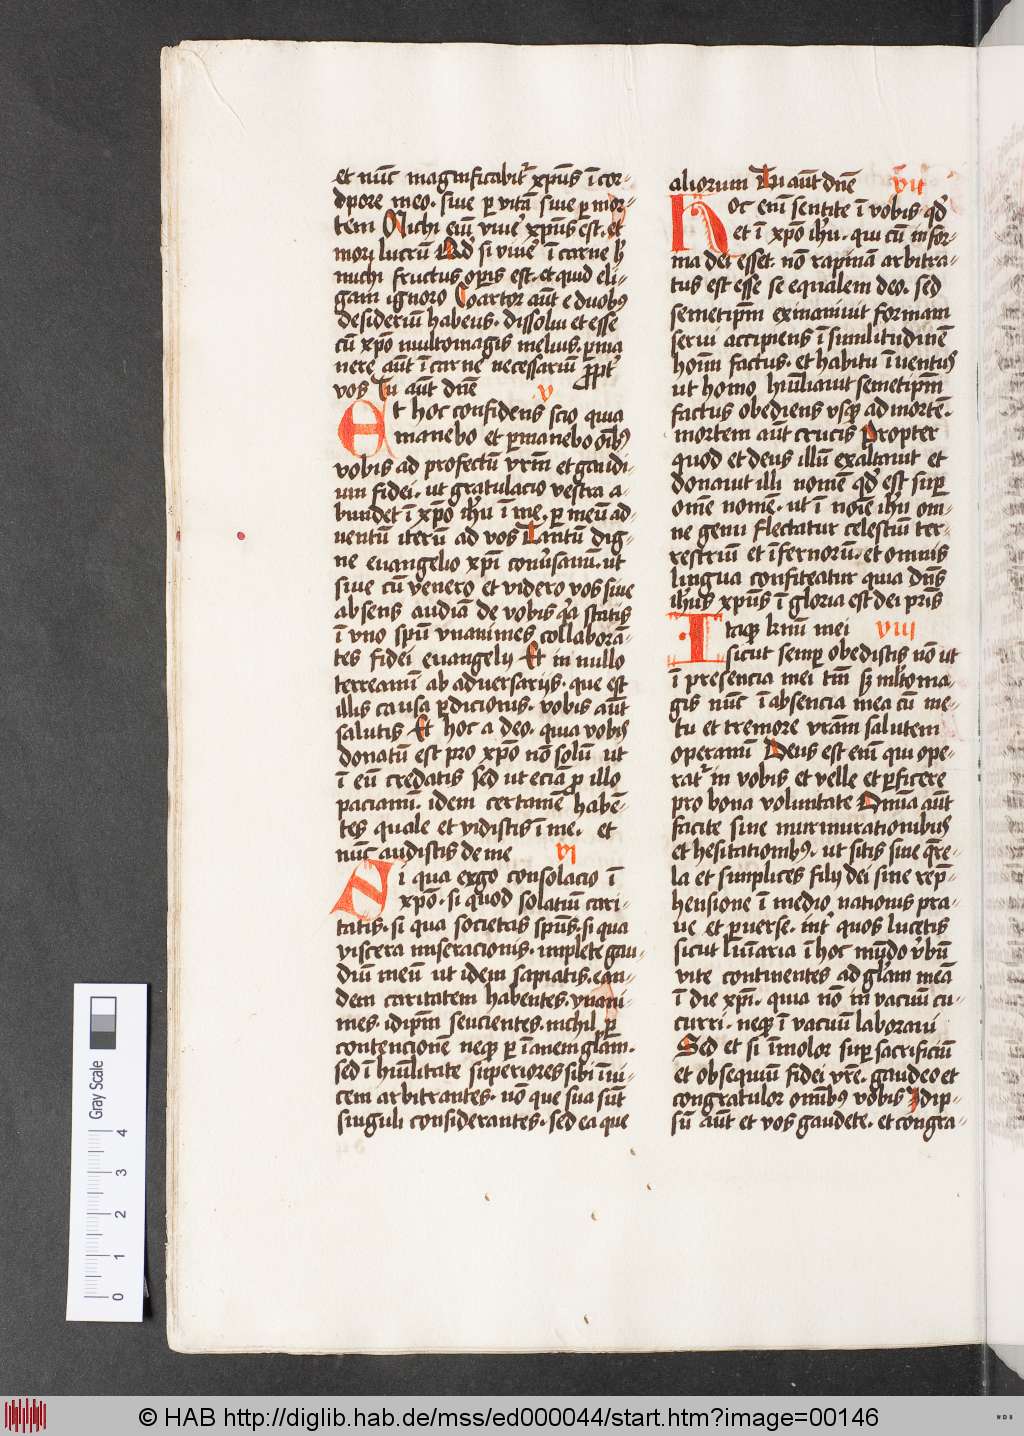 et nūc magnificabit᷑ xp̄us ī cor-
dpore meo. siue p̱ vitā siue p̱ mor-
tem Michi em̄ viuē xp̄us est. et
mori lucrū Qd̓ si viuē ī carne h̓
michi fructus op̱is est. et quid eli-
gam ignoro Coartor aūt e duobꝰ
desideriū habens. dissolui et esse
cū xp̄o multomagis melius. p̱ma
nere aūt ī carne necessariū ꝓpt᷑
vos Tu aūt dn̄e v
Et hoc confidens scio quia
manebo et p̱manebo oībꝰ
vobis ad profectū vr̄m et gaudi-
um fidei. ut gratulacio vestra a-
bundet ī xp̄o ih̄u ī me. p̱ meū ad-
uentū iterū ad vos Tantū dig-
ne euangelio xp̄i conūsamī. ut
siue cū venero et videro vos siue
absens audiā de vobis q̓a statis
ī vno sp̄u vnanimes collaborā-
tes fidei euangelij Et in nullo
terreamī ab aduersarijs. que est
illis causa p̱dicionis. vobis aūt
salutis Et hoc a deo. quia vobis
donatū est pro xp̄o nō solū ut
ī eū credatis sed ut eciā p̱ illo
paciamī. idem certamē habē-
tes quale et vidistis ī me. et
nūc audistis de me vi
Si qua ergo consolacio ī
xp̄o. si quod solatiū cari-
tatis. si qua societas sp̄us. si qua
viscera miseracionis. implete gau-
diū meū ut idem sapiatis. ean-
dem caritatem habentes. vnani-
mes. idip̄m sencientes. nichil p̱
contencionē neqꝫ p̱ ī anem gl̄am.
sed ī hūilitate superiores sibi īui-
cem arbitrantes. nō que sua sūt
singuli considerantes. sed ea que
aliorum Tu aūt dn̄e vii
Hoc em̄ sentite ī vobis. qd̓
et ī xp̄o ih̄u. qui cū in for-
ma dei esset. nō rapinā arbitra-
tus est esse se equalem deo. sed
semetip̄m exinaniuit formam
serui accipiens ī similitudinē
hoīm factus. et habitu īuentus
ut homo hūiliauit semetip̄m
factus obediens vsqꝫ ad mortē.
mortem aūt crucis Propter
quod et deus illū exaltauit et
donauit illi nomē qd̓ est sup̱
omē nomē. ut ī noīe ih̄u om-
ne genu flectatur celestiū ter-
restriū et īfernorū. et omnis
lingua confiteatur quia dn̄s
ih̄us xp̄us ī gloria est dei pr̄is
Itaqꝫ k̄mi mei viii
sicut semp̱ obedistis nō ut
ī presencia mei tm̄ sꝫ ml̓toma-
gis nūc ī absencia mea cū me-
tu et tremore vr̄am salutem
operamī Deus est em̄ qui ope-
rat᷑ in vobis et velle et p̱ficere
pro bona voluntate Omīa aūt
facite sine murmurationibus
et hesitationibꝰ. ut sitis sine q̄re-
la et simplices filij dei sine rep̄-
hensione ī medio nationis pra-
ue et p̱uerse. int᷑ quos lucetis
sicut lūīaria ī hoc mūdo v̓bū
vite continentes ad gl̄am meā
ī die xp̄i. quia nō in vacuū cu-
curri. neqꝫ ī vacuū laboraui
Sed et si īmolor sup̱ sacrificiū
et obsequiū fidei vr̄e. gaudeo et
congratulor omībꝰ vobis Idip-
sū aūt et vos gaudete. et congra-
Gray Scale
0 1 2 3 4
© HAB http://diglib.hab.de/mss/ed000044/start.htm?image=00146